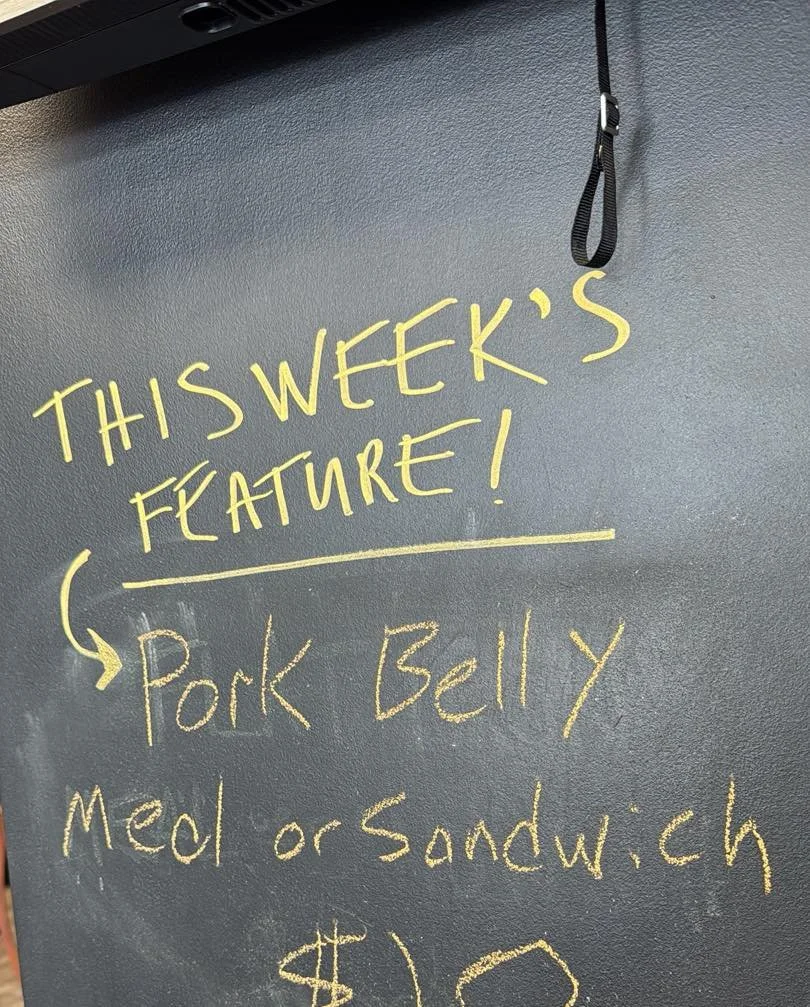 THIS WEEK'S
FEATURE!
Pork Belly
Meal or Sandwich
$10